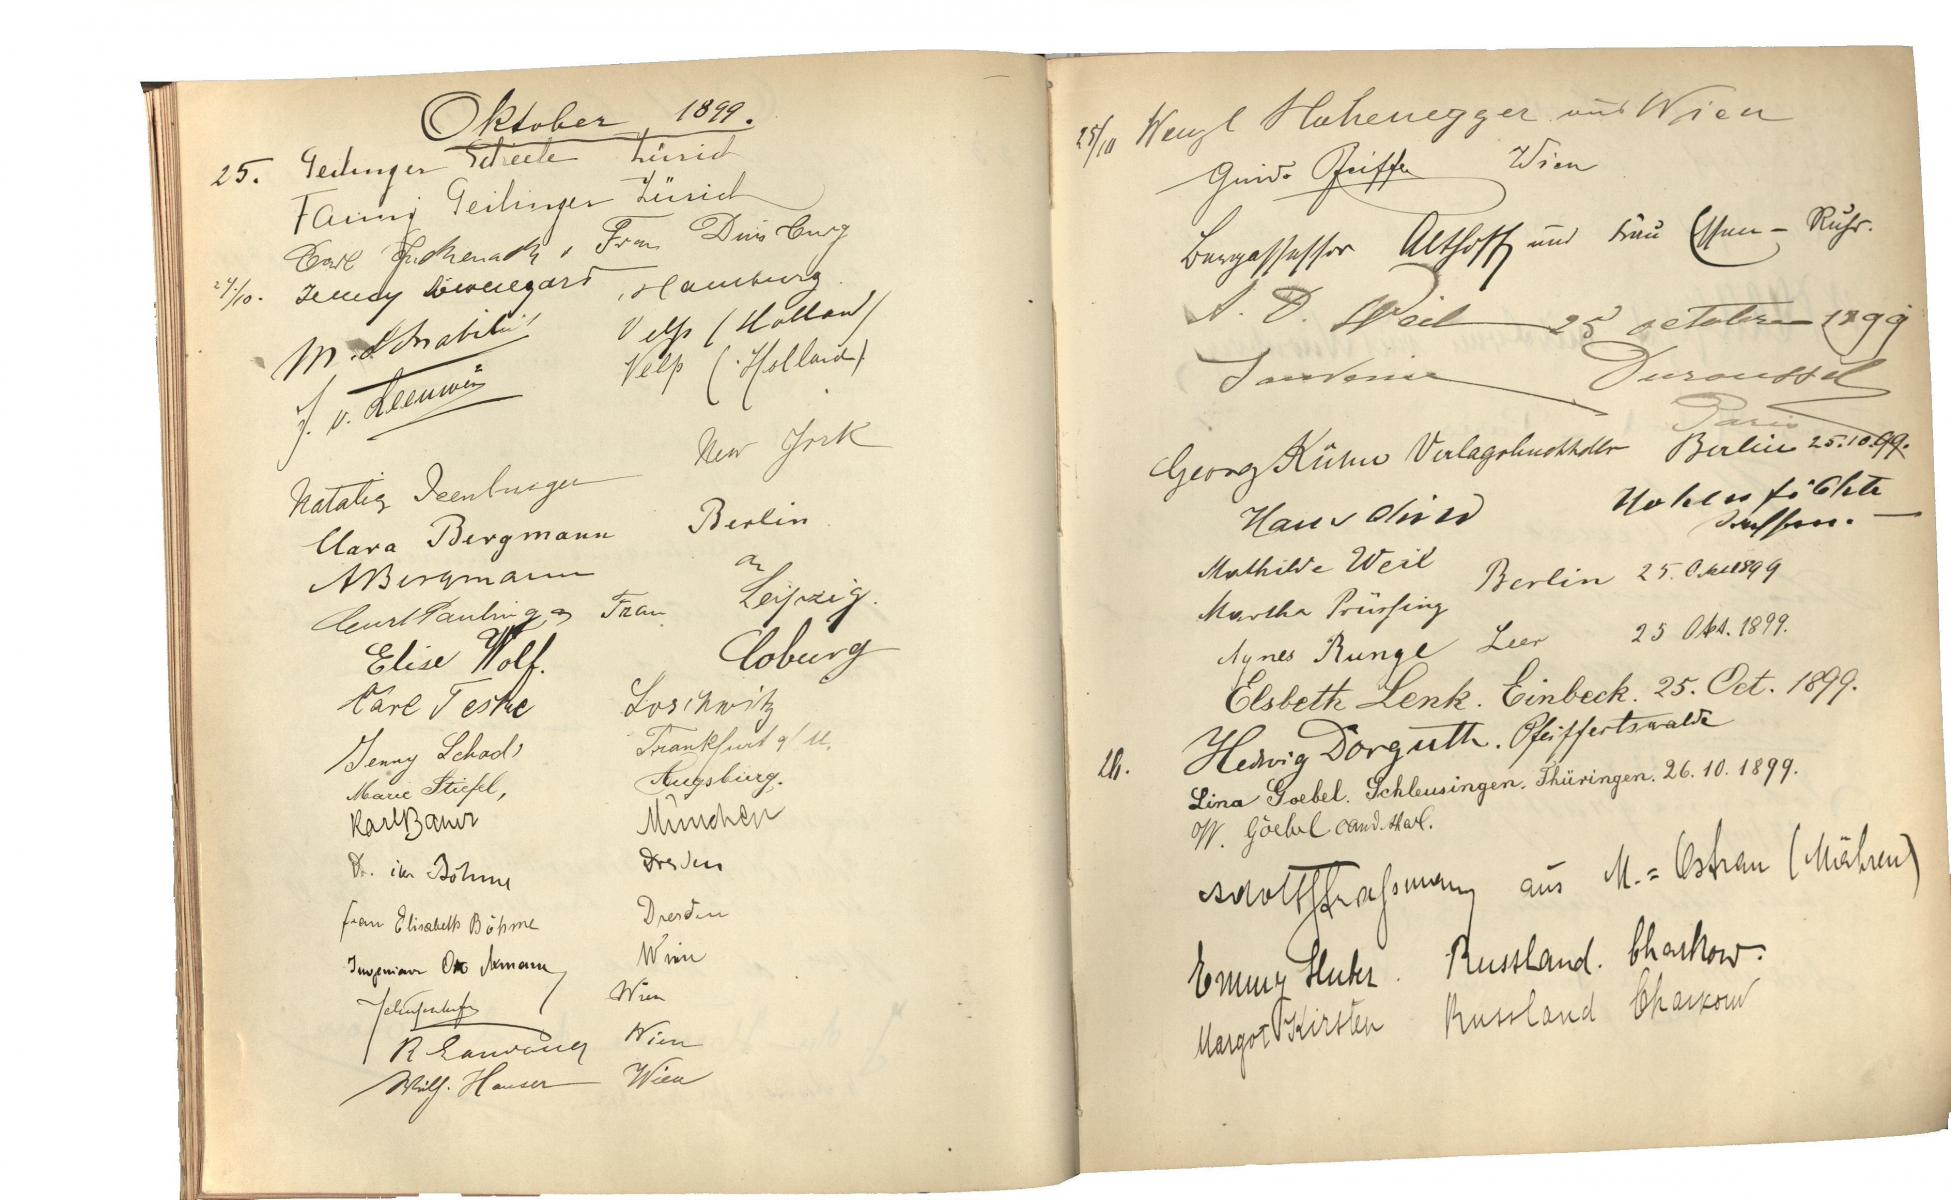 Oktober 1899.
25. Geilinger Scheele Zürich
Fanny Geilinger Zürich
Carl Frau Duisburg
24./10. Jenny , Hamburg
M. Velp (Holland)
J. v. Leeuwen Velp (Holland).
New York
Natalie Isenburger
Clara Bergmann Berlin
ABergmann
Curt Frau Leipzig.
Elise Wolf. Coburg
Carl Teske Loschwitz
Jenny Schad, Frankfurt a/M.
Marie Stiefel, Augsburg.
Karl Bauer München
Dr. Böhme Dresden
Frau Elisabeth Böhme Dresden
Ingenieur Axmann Wien
Wien
R Wien
Wilh. Hauser Wien
25/10 Wenzl Hohenegger und Wien
Guido Pfeiffer Wien
Bergassessor Althoff und Frau Essen-Ruhr.
A. D. Weil 25 octobre 1899
Souvenir Duroussel
Paris
Georg Kühn Verlagsbuchhdlr Berlin 25.10.99.
Hans
Mathilde Weil
Berlin 25. Okt 1899
Martha Prüssing
Agnes Runge Leer 25 Okt. 1899.
Elsbeth Lenk. Einbeck. 25. Oct. 1899.
26. Hedwig Dorguth. Pfeiffertswalde
Lina Goebel. Schleusingen. Thüringen. 26.10.1899.
W. Göebel cand.
aus M.=Ostrau (Mähren)
Emmy Huber. Russland. Charkow.
Margot Kirsten Russland Charkow